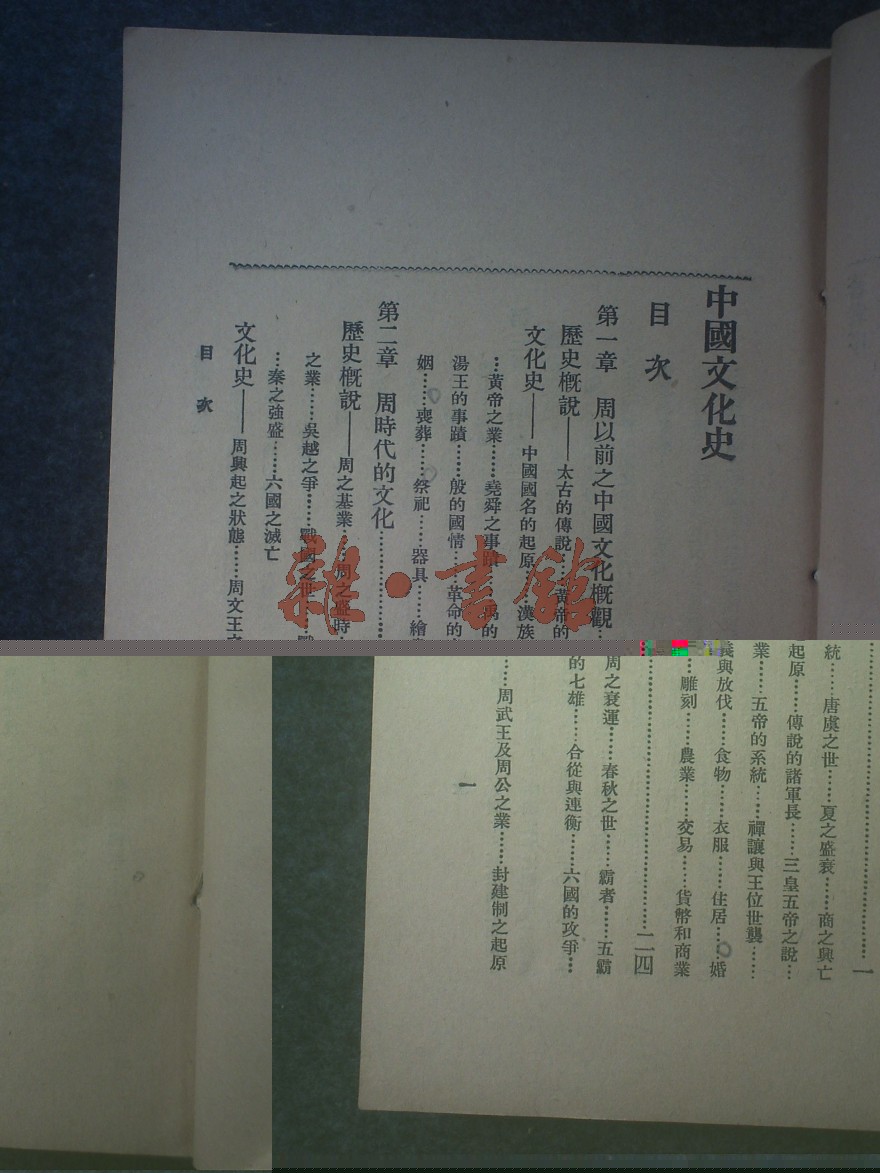 中國文化史
目次
第一章 周以前之中國文化槪觀…
歷史槪說——太古的傳說……黃帝的
文化史——中國國名的起原……漢族
…黃帝之業……堯舜之事蹟……禹的
湯王的事蹟……般的國情……革命的
姻……喪葬……祭祀……器具……繪
第二章 周時代的文化…………
歷史槪說——周之基業……周之盛時
之業……吳越之爭……戰國之世……戰
…秦之強盛……六國之滅亡
文化史——周興起之狀態……周文王
目次
雜·書館
…………一
統……唐虞之世……夏之盛衰……商之興亡
起原……傳說的諸軍長……三皇五帝之說…
業……五帝的系統……禪讓與王位世襲……
義與放伐……食物……衣服……住居……婚
雕刻……農業……交易……貨幣和商業
…………二四
周之衰運……春秋之世……霸者……五霸
的七雄……合從與連衡……六國的攻爭…
……周武王及周公之業……封建制之起原
一